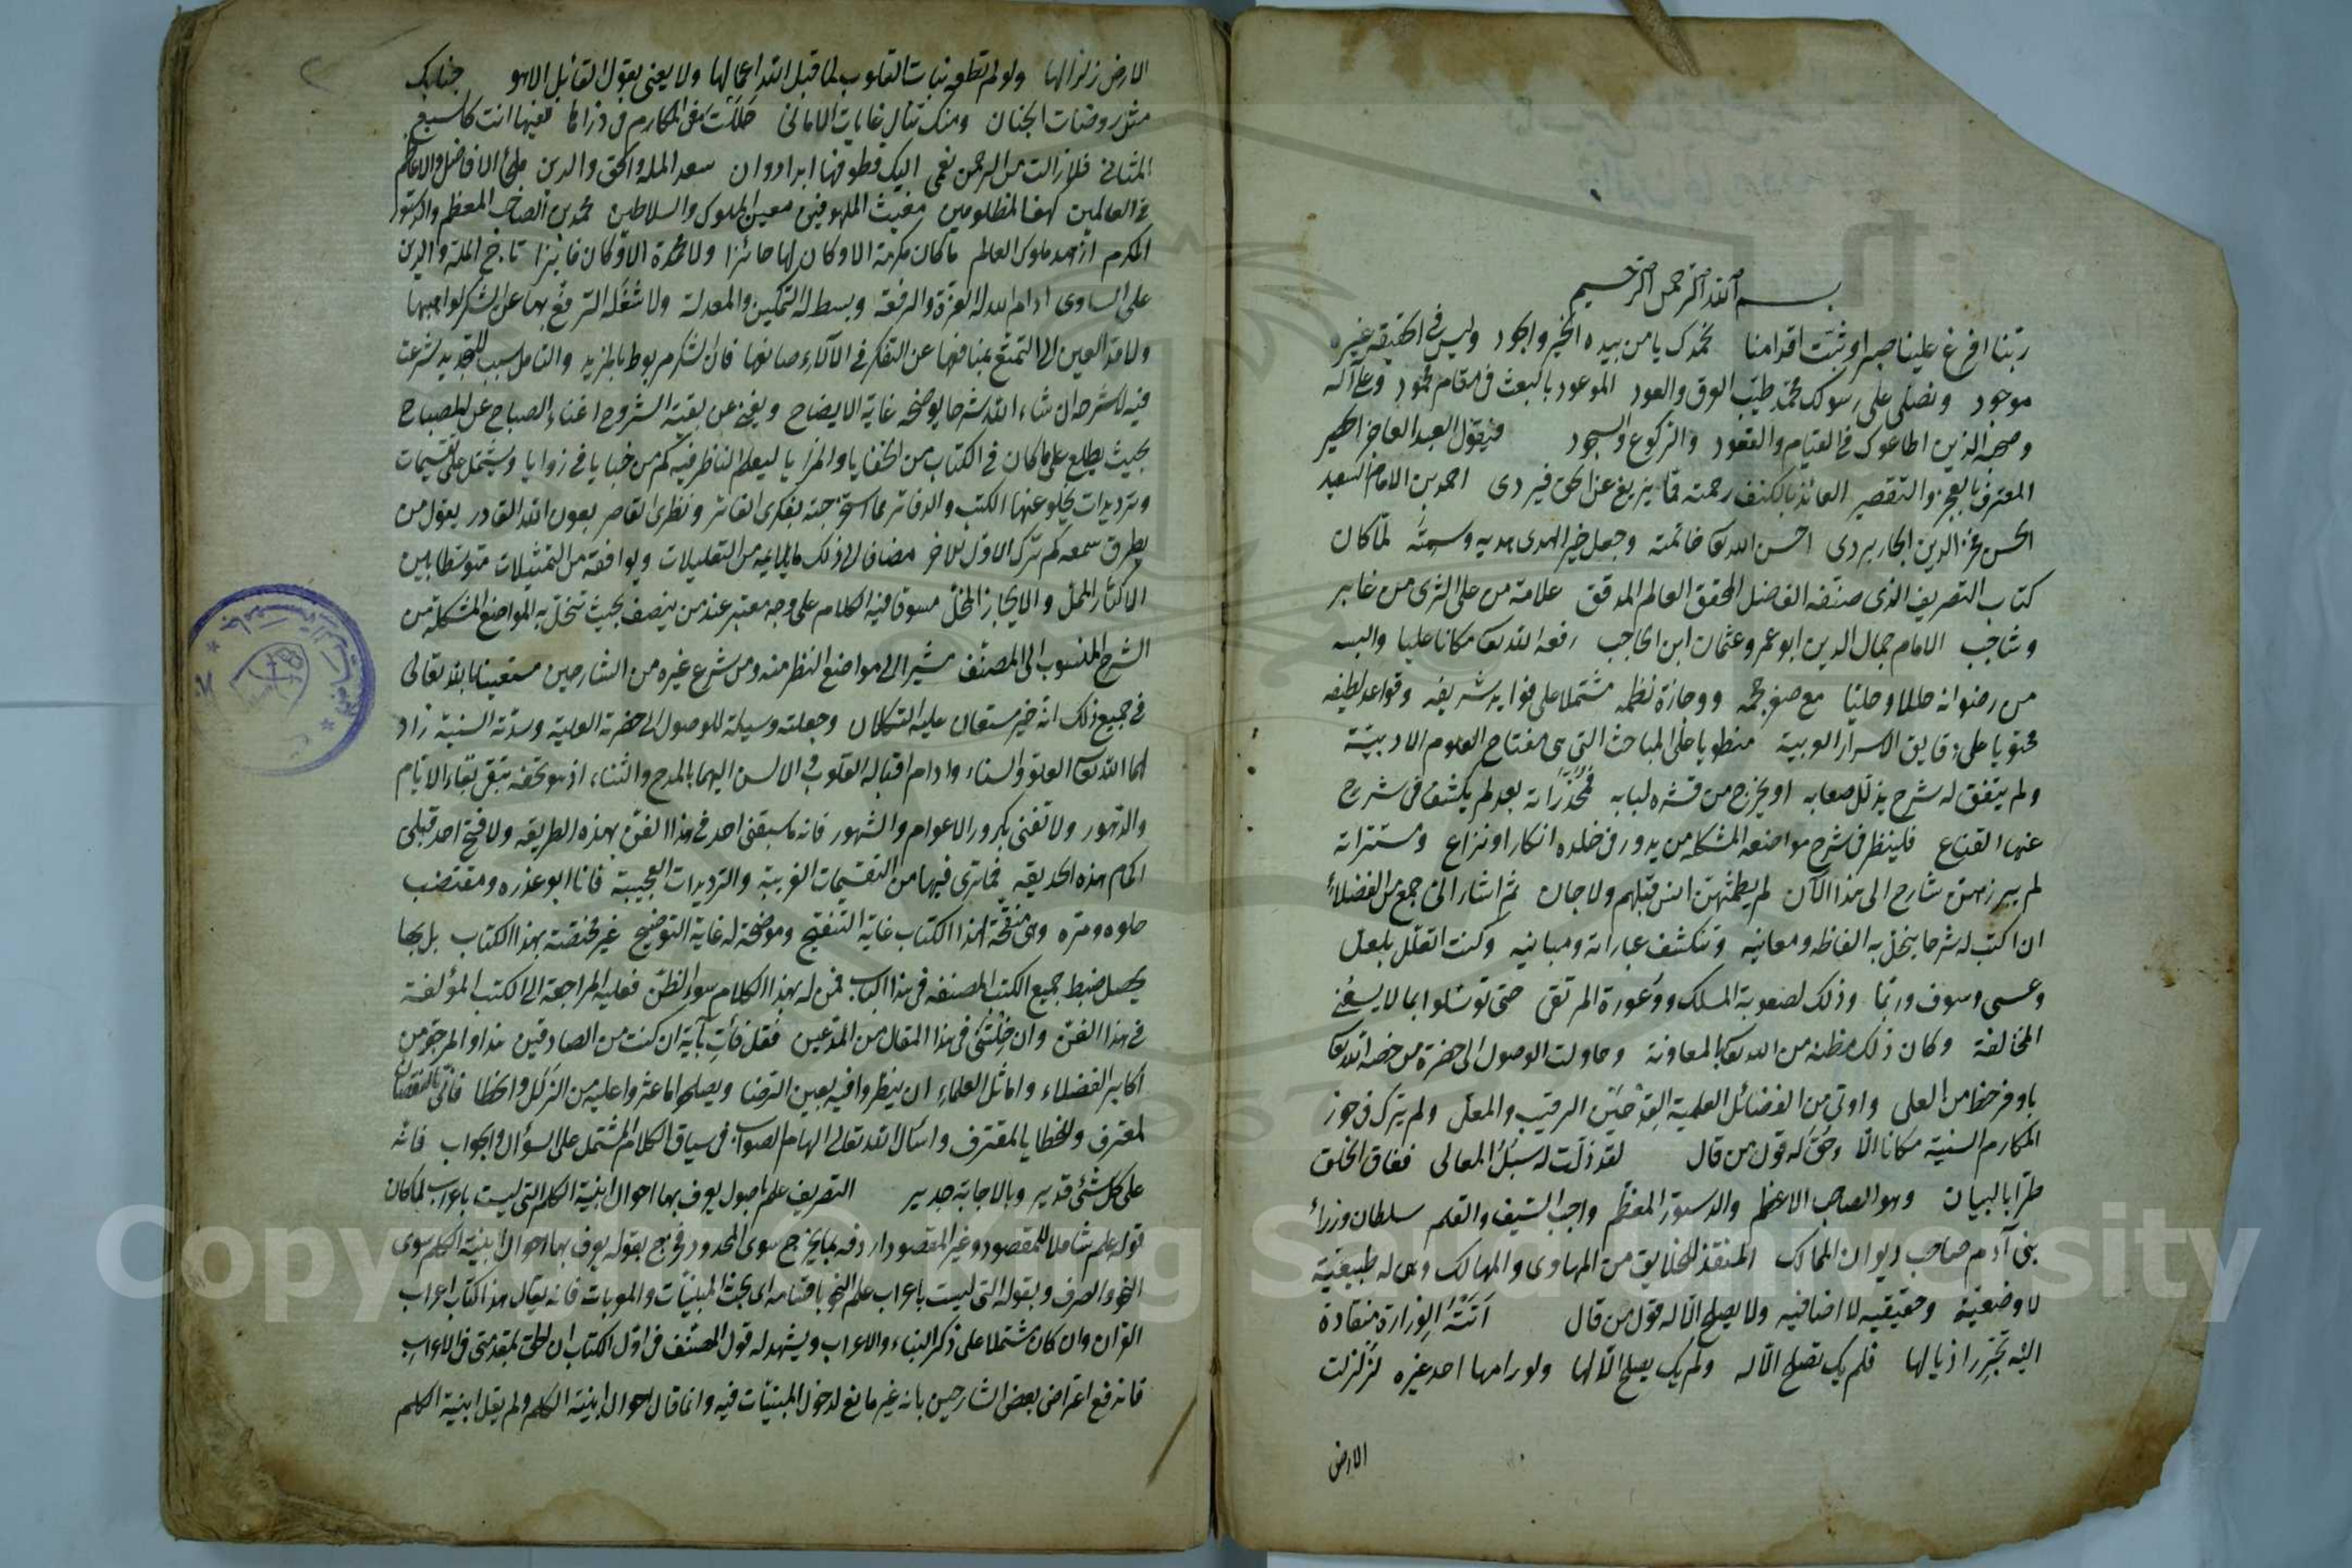 بسم الله الرحمن الرحيم
ربنا افرغ علينا صبرا وثبت اقدامنا نحمدك يا من بيده الخير والجود وليس في الحقيقة غيره
موجود ونصلى على رسولك محمد طيب العرق والعود الموعود بالبعث في مقام محمود وعلى آله
وصحبه الذين اطاعوك في القيام والقعود والركوع والسجود فيقول العبد العاجز الحقير
المعترف بالعجز والتقصير العائذ بالكنف رحمته مما يزيغ عن الحق فيردى احمد بن الامام السعيد
الحسن فخر الدين الجاربردى احسن الله تعا خاتمته وجعل خير الهدى هديه وسمته لما كان
كتاب التصريف الذى صنفه الفاضل المحقق العالم المدقق علامة من على الثرى من غابر
وشاجب الامام جمال الدين ابو عمرو عثمان ابن الحاجب رفعه الله تعا مكانا عليا والبسه
من رضوانه حللا وحليا مع صغر حجمه ووجازة نظمه مشتملا على فوايد شريفه وقواعد لطيفه
محتويا على دقايق الاسرار العربية منطويا على المباحث التى هى مفتاح العلوم الادبية
ولم يتفق له شرح يذلل صعابه او يخرج من قشره لبابه فمخدراته بعد لم يكشف في شرح
عنها القناع فلينظر في شرح مواضعه المشكله من يدور في خلده انكار او نزاع ومستتراته
لم يبرزهن شارح الى هذا الآن لم يطمثهن انس قبلهم ولا جان ثم اشار الى جمع من الفضلاء
ان اكتب له شرحا ينحل به الفاظه ومعانيه وتنكشف عباراته ومبانيه وكنت اتعلل بلعل
وعسى وسوف وربما وذلك لصعوبة المسلك ووعورة المرتقى حتى توسلوا بما لا يسعنى
المخالفة وكان ذلك مظنة من الله تعا بالمعاونة وحاولت الوصول الى حضرة من خصه الله تعا
باوفر حظ من العلى واوتى من الفضائل العلمية القدحين الرقيب والمعلى ولم يترك في حوز
المكارم السنية مكانا الا وحق له قول من قال لقد ذلت له سبل المعالى ففاق الخلق
طرا بالبيان وهو الصاحب الاعظم والدستور المعظم واجب السيف والقلم سلطان وزراء
بنى آدم صاحب ديوان الممالك المنقذ للخلايق من المهاوى والمهالك وهى له طبيعية
لا وضعية وحقيقيه لا اضافيه ولا يصلح الا له قول من قال اتته الوزارة منقادة
اليه تجرر اذيالها فلم يك تصلح الا له ولم يك يصلح الا لها ولو رامها احد غيره لزلزلت
الارض
الارض زلزالها ولو لم تطعه نبات القلوب لما قبل الله اعمالها ولا يعنى بقول القائل الا هو جنابك
مثل روضات الجنان ومنك تنال غايات الامانى حللت من المكارم في ذراها ففيها انت كالسبع
المثانى فلا زالت من الرحمن نعمى اليك قطوفها ابدا دوان سعد الملة والحق والدين ملجأ الافاضل والاعاظم
في العالمين كهف المظلومين مغيث الملهوفين معين الملوك والسلاطين محمد بن الصاحب المعظم والدستور
المكرم ازهد ملوك العالم ما كان مكرمة الا وكان لها حائزا ولا محمدة الا وكان فائزا تاج الملة والدين
على الساوى ادام الله له العزة والرفعة وبسط له التمكين والمعدلة ولا شغله الترفع بها عن الشكر لواهبها
ولا مد العين الى التمتع بمنافعها عن التفكر في الآلاء صانعها فان الشكر مربوط بالمزيد والتامل سبب للتجديد شرعت
فيه لاشرحه ان شاء الله شرحا يوضحه غاية الايضاح ويغنى عن بقية الشروح اغناء الصباح عن المصباح
بحيث يطلع على ما كان في الكتاب من الخفايا والمزايا ليعلم الناظر فيه كم من خبايا في زوايا ويشتمل على تقسيمات
وترديدات يخلو عنها الكتب والدفاتر مما استخرجته بفكرى الفاتر ونظرى القاصر بعون الله القادر يقول من
يطرق سمعه كم ترك الاول للاخر مضافا الى ذلك ما يلايمه من التعليلات ويوافقه من التمثيلات متوسطا بين
الاكثار الممل والايجاز المخل مسوقا فيه الكلام على وجه معتبر عند من ينصف بحيث تنحل به المواضع المشكلة من
الشرح المنسوب الى المصنف مشيرا الى مواضع النظر منه ومن شرح غيره من الشارحين مستعينا بالله تعالى
في جميع ذلك انه خير مستعان عليه التكلان وجعلته وسيلة للوصول الى حضرته العلية وسدته السنية زاد
لهما الله تعا العلو والسناء وادام اقباله القلوب والالسن اليهما بالمدح والثناء، اذ هو تحفه تبقى بقاء الايام
والدهور ولا تفنى بكرور الاعوام والشهور فانه ما سبقنى احد في هذا الفن بهذه الطريقه ولا فتح احد قبلى
اكمام هذه الحديقه فما ترى فيها من التقسيمات الغريبة والترديدات العجيبة فانا ابو عذره ومقتضب
حلوه ومره وهى منقحة لهذا الكتاب غاية التنقيح وموضحة له غاية التوضيح غير مختصة بهذا الكتاب بل بها
يحصل ضبط جميع الكتب المصنفه في هذا الباب فمن له بهذا الكلام سوء الظن فعليه المراجعة الى الكتب المؤلفة
في هذا الفن وان خلتنى في هذا المقال من المدعين فقل فأت بآية ان كنت من الصادقين هذا والمرجو من
اكابر الفضلاء واماثل العلماء ان ينظروا فيه بعين الرضا ويصلحوا ما عثروا عليه من الزلل والخطا فانى بالنقصان
لمعترف وللخطايا لمقترف واسال الله تعالى الهام الصواب في سياق الكلام المشتمل على السؤال والجواب فانه
على كل شئ قدير وبالاجابة جدير التصريف علم باصول يعرف بها احوال ابنية الكلم التى ليست باعراب لما كان
قوله علم شاملا للمقصود وغير المقصود اردفه بما يخرج سوى المحدود فخرج بقوله يعرف بها احوال ابنية الكلم سوى
النحو والصرف وبقوله التى ليست باعراب علم النحو باقسامه اى بحث المبنيات والمعربات فانه يقال هذا كتاب اعراب
القرآن وان كان مشتملا على ذكر البناء والاعراب ويشهد له قول المصنف في اول الكتاب ان الحق بمقدمتى في الاعراب
فاندفع اعتراض بعض الشارحين بانه غير مانع لدخول المبنيات فيه وانما قال احوال ابنية الكلم ولم يقل ابنية الكلم
Copyright © King Saud University